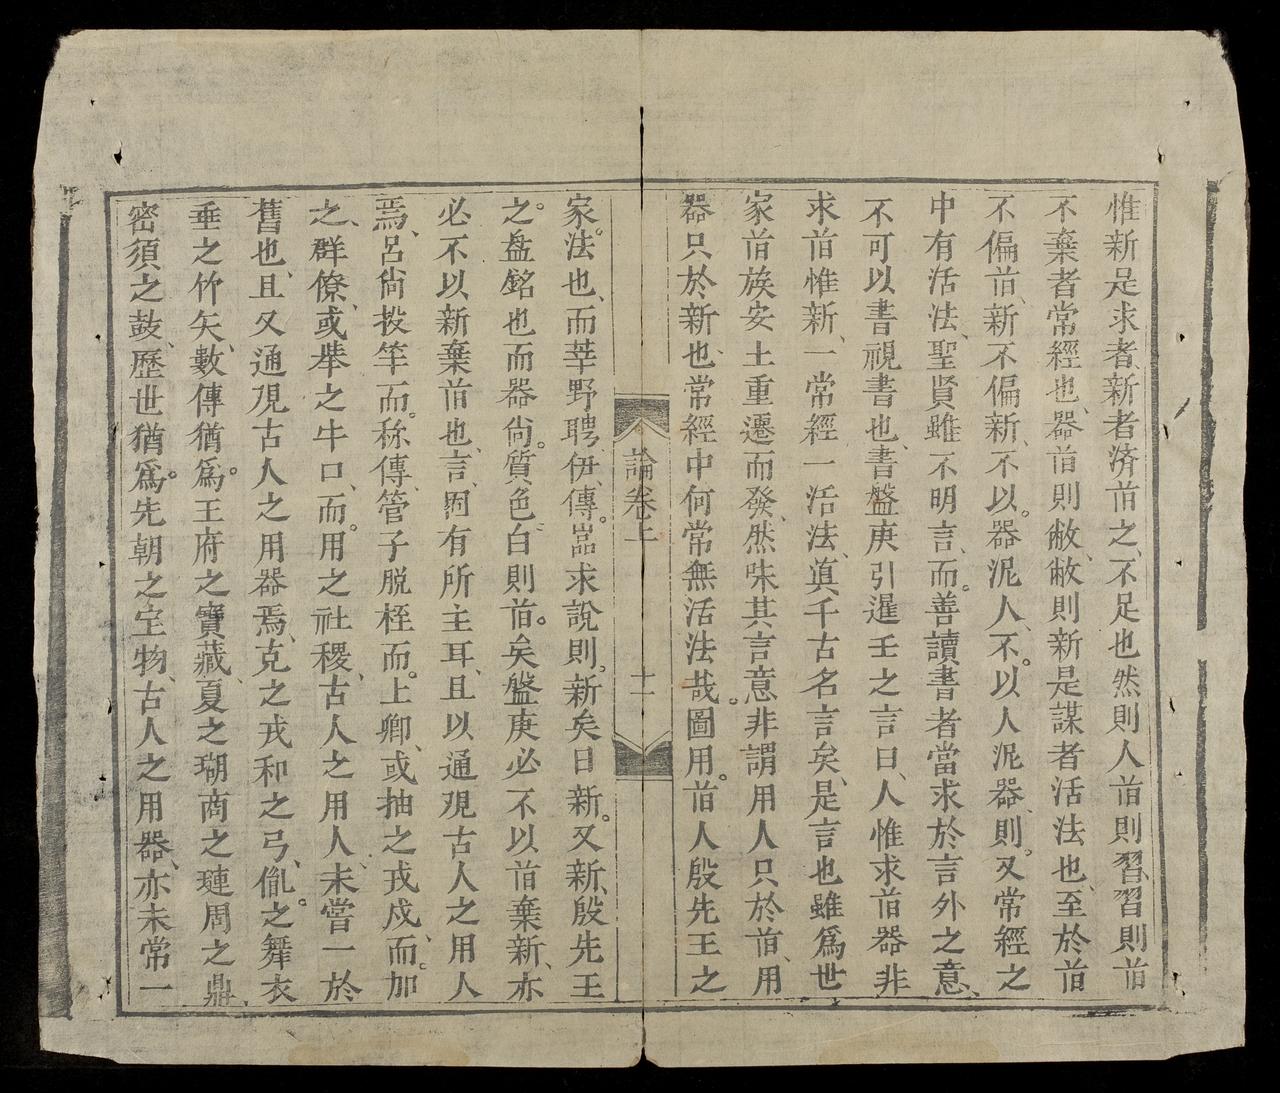 惟新是求者、新者済𦾔之、不足也然則人𦾔則習、習則𦾔
不棄者常經也、器𦾔則敝、敝則新是謀者活法也、至於𦾔
不偏𦾔、新不偏新、不以。器泥人、不。以人泥器、則。又常經之
中有活法、聖賢雖不明言、而。善讀書者當求於言外之意、
不可以書視書也、書盤庚引遲壬之言曰、人惟求𦾔器非
求𦾔惟新、一常經一活法、眞千古名言矣、是言也雖爲世
家𦾔族安土重遷而發、然味其言意。非謂用人只於𦾔、用
器只於新也、常經中何常無活法哉圖用。𦾔人殷先王之
論卷上
十一
家。法也、而莘野聘伊、傳。嵓求說則。新矣日新。又新、殷先王
之。盘銘也而器尙。質色白則𦾔。矣盤庚必不以𦾔棄新、亦
必不以新棄𦾔也、言固有所主耳、且以通覌古人之用人
焉、呂尙投竿而。称傳、管子脱桎而。上卿、或抽之戎戍、而。加
之、群僚、或举之牛口、而。用之社稷、古人之用人、未嘗一於
舊也、且又通覌古人之用器焉、克之戎和之弓、胤。之舞衣
垂之竹矢、數傳猶爲。王府之寶藏、夏之瑚商之璉周之鼎、
密須之鼓、歷世猶爲。先朝之宝物、古人之用器、亦未常一